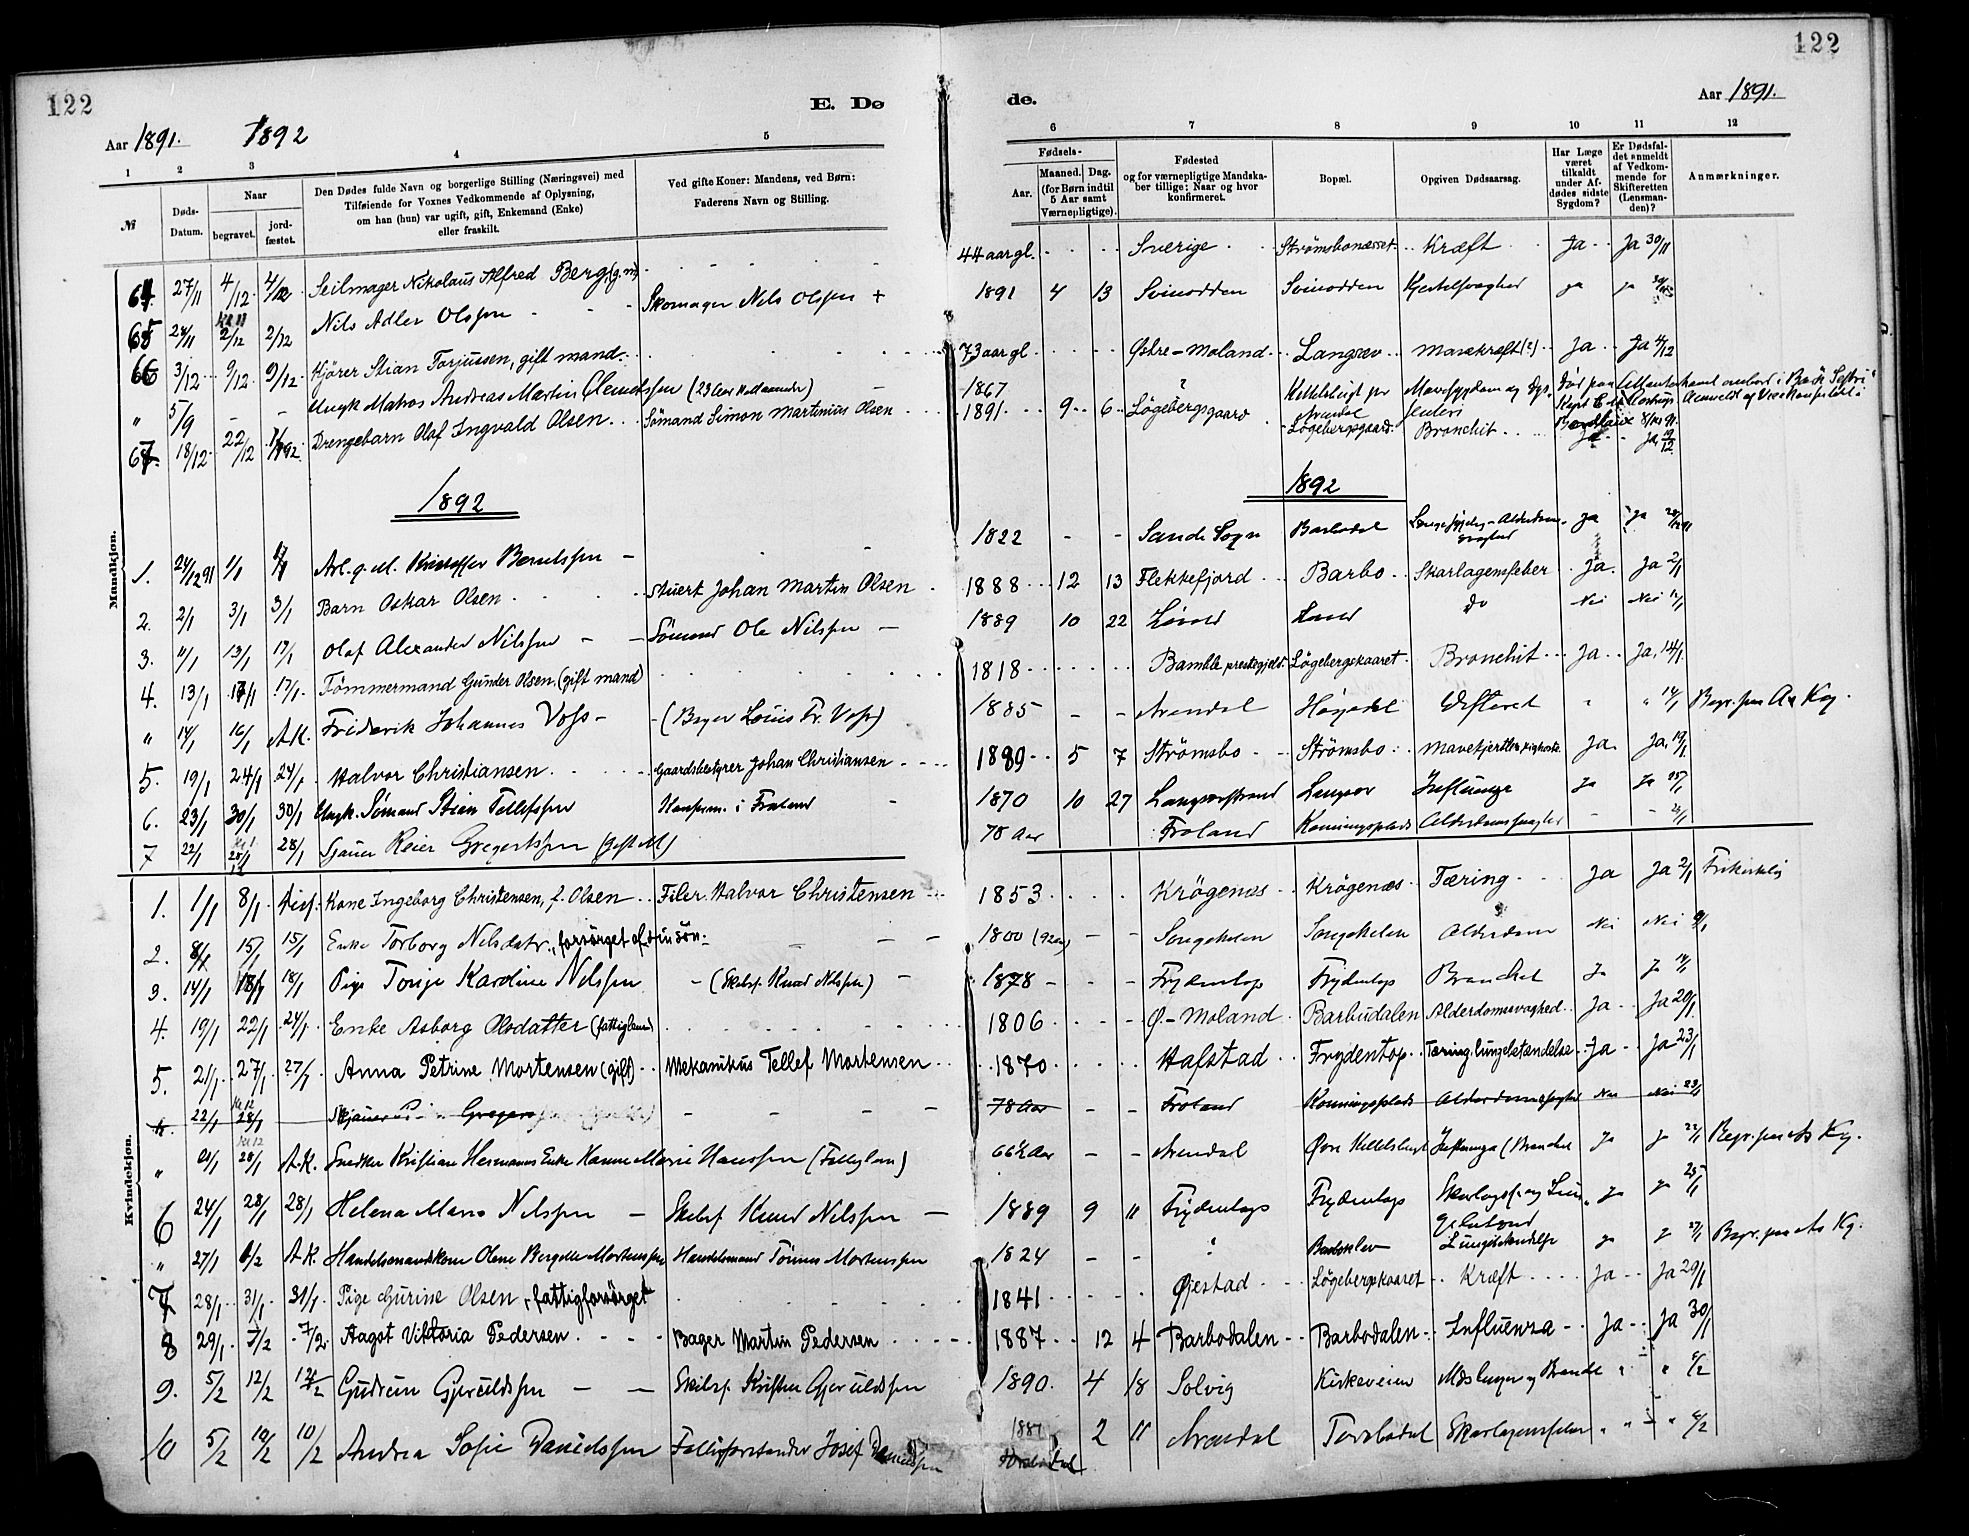 122
E. Dø
de.
122
Aar 1891. 1892
Aar 1891.
1 2 3 4 5 6 7 8 9 10 11 12
№
Døds-Datum.
Naar
begravet.
jord-fæstet.
Den Dødes fulde Navn og borgerlige Stilling (Næringsvei) med
Tilføiende for Voxnes Vedkommende af Oplysning,
om han (hun) var ugift, gift, Enkemand (Enke)
eller fraskilt.
Ved gifte Koner: Mandens, ved Børn:
Faderens Navn og Stilling.
Fødsels-
Aar.
Maaned. Dag.
(for Børn indtil
5 Aar samt
Værnepligtige).
Fødested
og for værnepligtige Mandska-
ber tillige: Naar og hvor
konfirmeret.
Bopæl.
Opgiven Dødsaarsag.
Har Læge
været
tilkaldt
under Af-
dødes sidste
Sygdom?
Er Dødsfal-
det anmeldt
af Vedkom-
mende for
Skifteretten
(Lensman-
den)?
Anmærkninger.
Mandkjøn.
64. 27/11 4/12 4/12 Seilmager Nikolaus Alfred Berg (g.m) 44 aar gl. Sverige Strømsbonæsset Kræft Ja Ja 30/11
65 28/11 2/12 2/12 Nils Adler Olssen Skomager Nils Olssen + 1891 4 13 Svinodden Svinodden Kjertelsvaghed ja ja
66 3/12 9/12 9/12 Kjører Stian Torjussen, gift mand. 73 aar gl. Østre-Moland Langsæv Mavekræft (?) Ja Ja 4/12
" 5/9 - - Ungk. Matros Andreas Martin Clemetssen (23 Aar) 1867 ? Kittelsbugt pr Arendal Mavesygdom og
67. 18/12 22/12 Drengebarn Olaf Ingvald Olsen Sømand Simon Martinius Olsen 1891 9 6 Løgebergsgaard Løgebergsgaard Bronchit Ja Ja 19/12
1892
1892
1. 24/12 91 1/1 Arb. g. M. Kristoffer Berntssen 1822 - - Sande Sogn Barbodal Ja Ja
2. 2/1 3/1 3/1 Barn Oskar Olsen Stuert Johan Martin Olsen 1888 12 13 Flekkefjord Barbo Skarlagensfeber Ja Ja 2/1
3. 11/1 13/1 17/1 Olaf Alexander Nilssen Sømand Ole Nilssen 1889 10 22 do Nei Nei 12/1
4. 13/1 17/1 17/1 Tømmermand Gunder Olsen (gift mand) 1818 Bamble prestegjeld Løgebergskaaret Bronchit Ja Ja, 14/1
" 14/1 16/1 A.K. Friderik Johannes Voss (Bager Louis Fr. Voss) 1885 - - Arendal Høgedal " " 14/1 Begr. paa A. Kg.
5. 19/1 24/1 24/1 Halvor Christiansen Gaardsbestyrer Johan Christiansen 1889 5 7 Strømsbo Strømsbo Mavekjertler, kighoste Ja Ja, 19/1
6. 23/1 30/1 30/1 Ungk. Sømand Stian Tellefssen i Froland 1870 10 27 Langsævstrand Langsæv Influenza Ja Ja 25/1
7 22/1 28/1 28/1 Sjauer Reier Gregertssen (Gift M) 78 Aar Froland Konningsplads Alderdomssvaghed - -
Kvindekjøn.
1. 1/1 8/1 Disp. Kone Ingeborg Christensen, f. Olsen Filer Halvor Christensen 1853 Krøgenæs Krøgenæs Tæring Ja Ja 2/1 Frikirkelig
2. 8/1 15/1 15/1 Enke Torborg Nilsdatr., forsørget af sin søn. 1800 (92 aar) - - Songekelen Songekelen Alderdom Nei Nei 9/1
3. 14/1 18/1 18/1 Pige Tonje Karoline Nilssen (Skibsf. Knud Nilssen) 1878 - - Frydentop Frydentop Bronchit Ja Ja
4. 19/1 22/1 24/1 Enke Asborg Olsdatter (fattiglem) 1806 Ø-Moland Barbudalen Alderdomssvaghed Ja Ja 20/1
5. 21/1 27/1 27/1 Anna Petrine Mortensen (gift) Mekanikus Tellef Mortensen 1870 Hafstad Frydentop Tæring, lungebetændelse Ja Ja 23/1
22/1 28/1 Skjauer Gregers 78 Aar - - Froland Konningsplads Alderdomssvaghed Nei Nei 23/1
" 21/1 28/1 A.K. Snedker Kristian Hermanns Enke Hanne Marie Hanssen (Fattiglem) 66½ Aar - - Arendal Øvre Kittelsbugt Influenza (Bronchit Ja Ja 22/1 Begr. paa As Kg.
6 24/1 28/1 28/1 Helena Marie Nilssen Skibsf Knud Nilssen 1889 9 11 Frydentop Frydentop Skarlagsf. og Lungebetænd Ja Ja 25/1
" 27/1 6/2 A.K. Handelsmandskone Olene Bergitte Mortenssen Handelsmand Tønnes Mortenssen 1824 - - Barboklev Lungebetændelse Ja Ja 27/1 Begr. paa As Kg.
7 28/1 31/1 31/1 Pige Gurine Olsen, fattigforsørget 1841 Øiestad Løgebergskaaret Kræft Ja Ja 29/1
8 29/1 7/2 7/2 Aagot Viktoria Pedersen Bager Martin Pedersen 1887 12 4 Barbodalen Barbodalen Influenza Ja Ja 30/1
9. 5/2 12/2 12/2 Gudrun Gjeruldssen Skibsf. Kristen Gjeruldssen 1890. 4 18 Solvig Kirkeveien Mæslinger og Bronchit " " 6/2
10 5/2 10/2 10/2 Andrea Sofie Danielssen Fattigforstander Josef Danielssen 1887 2 11 Arendal Torsbudal Skarlagensfeber " " 6/2